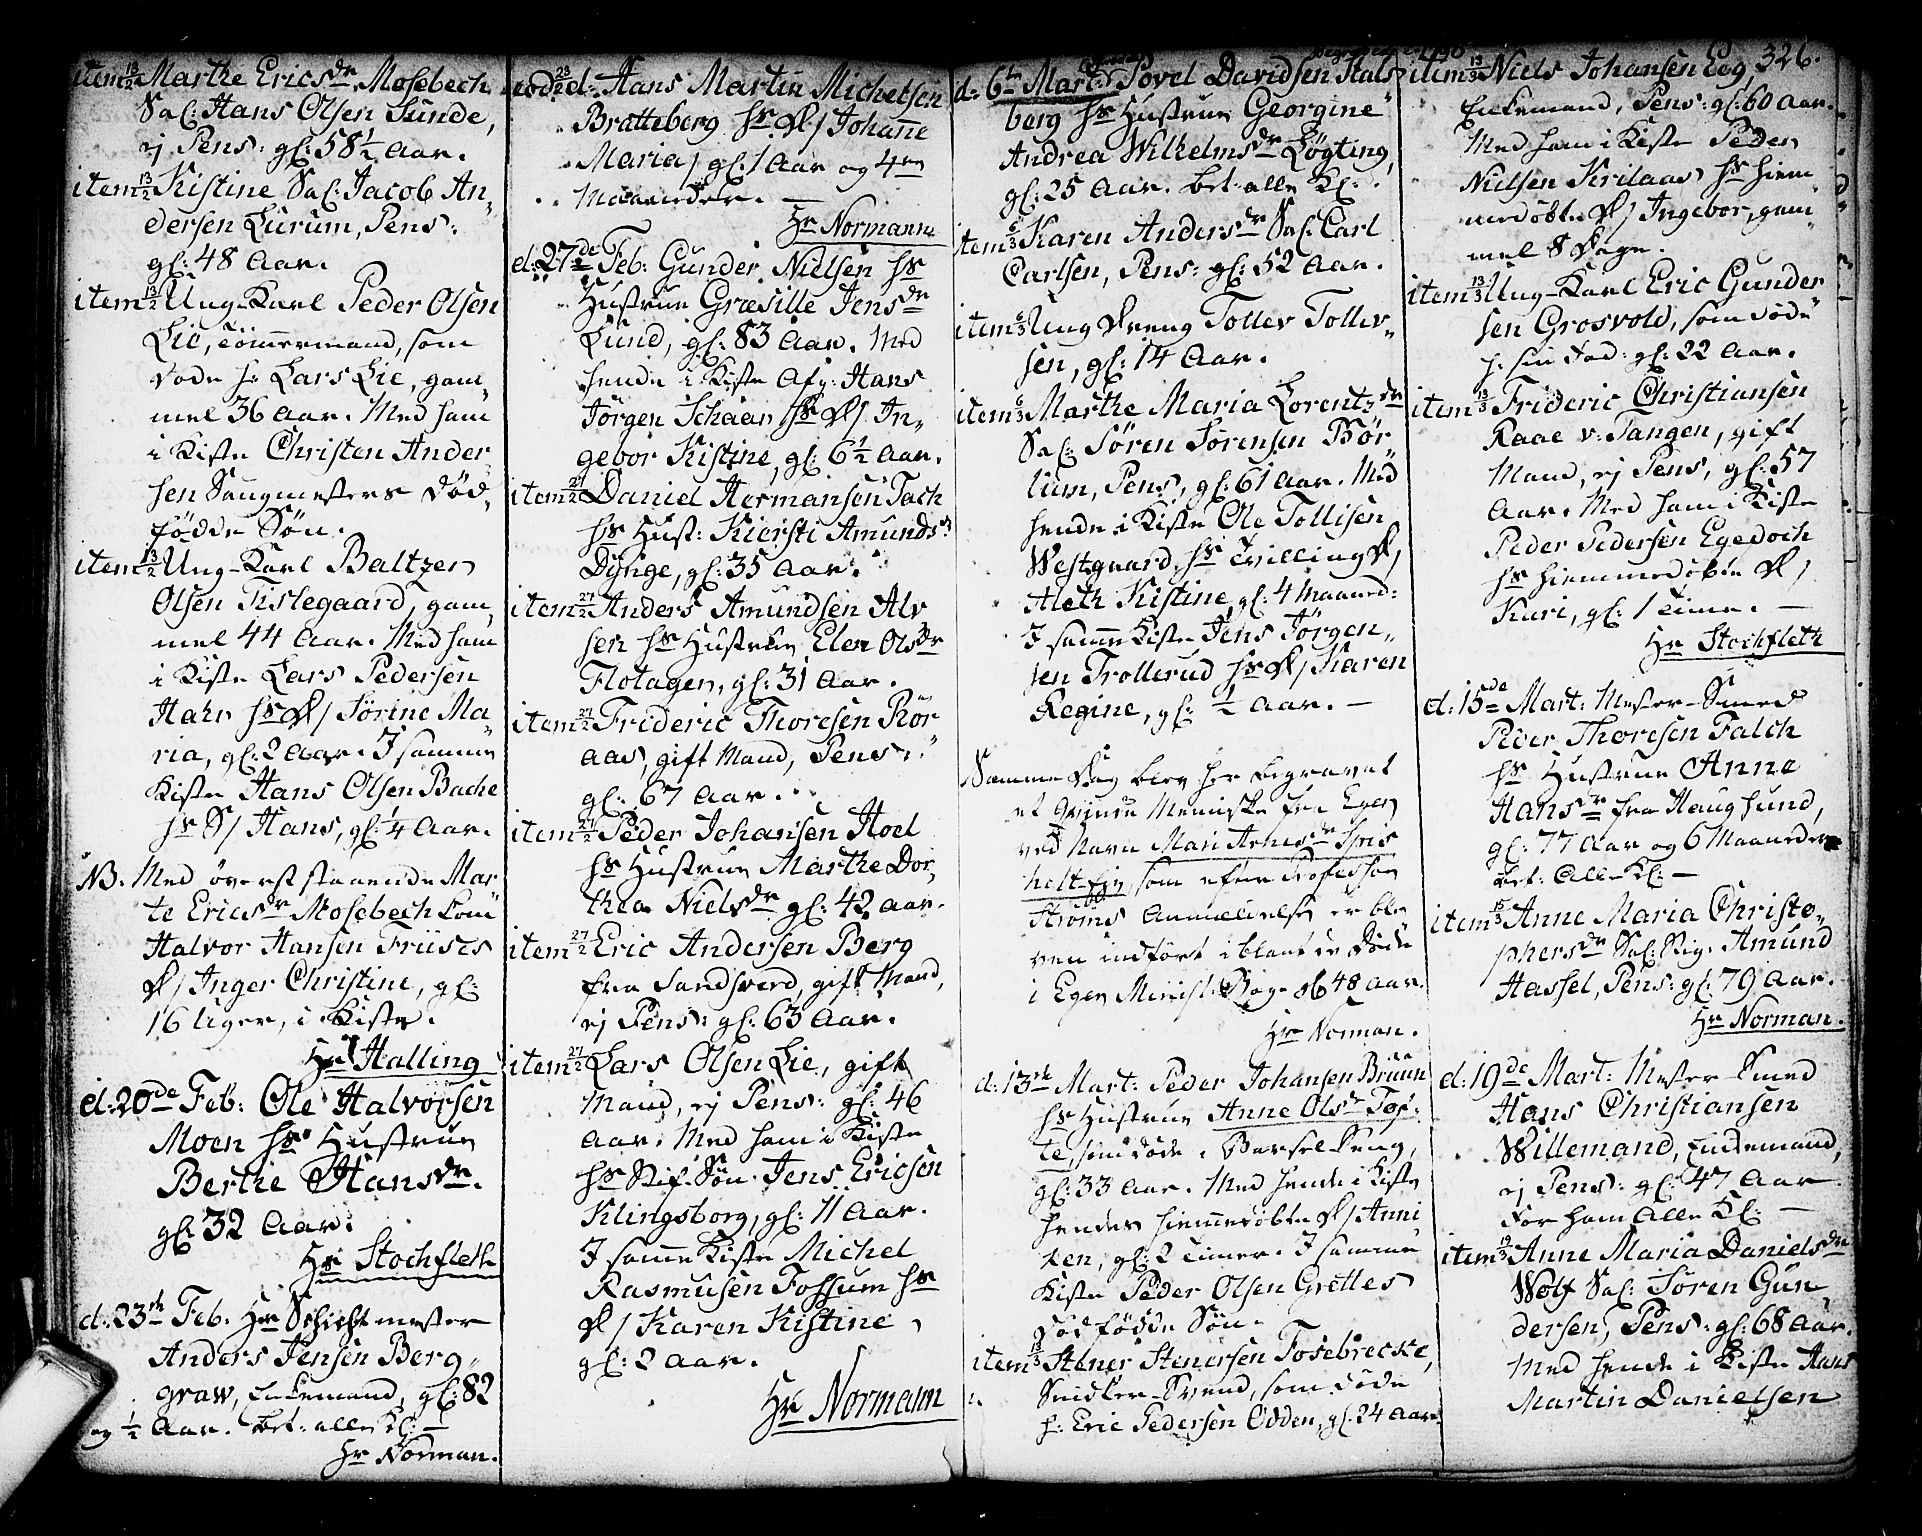 item 13/2 Marthe Ericsdr Mosebech
Sal: Hans Olsen Sunde,
ej Pens: gl: 58 1/2 Aar.
item 13/2 Kistine Sal: Jacob An„
dersen Lurum, Pens:
gl: 48 Aar.
item 13/2 Ung-Karl Peder Olsen
Lie, Tömmermand, som
döde h: Lars Lie, gam„
mel 36 Aar. Med ham
i Kiste Christen Ander
sen Saugmesters Död„
födde Sön.
item 13/2 Ung-Karl Baltzer
Olsen Tislegaard, gam„
mel 44 Aar. Med ham
i Kiste Lars Pedersen
Hahr hs D/ Sörine Ma„
ria, gl: 2 Aar. I samme
Kiste Hans Olsen Bache
hs S/ Hans, gl: 1/4 Aar.
NB. Med överst staaende Mar„
te Ericsdr Mosebech kom
Halvor Hansen Friises
D/ Inger Christine, gl:
16 Uger, i Kiste.
Hr Halling
d: 20de Feb: Ole Halvorsen
Moen hs Hustrue
Berthe Hansdr.
gl: 32 Aar.
Hr Stochfleth
d: 23th Feb. Hr Schichtmester
Anders Jensen Berg„
graw, Enkemand, gl: 82
og 1/2 Aar. bet: alle Kl: —
Hr Norman.
eod: 23/2 d: Hans Martin Michelsen
Bratteberg hs D/ Johanne
Maria/ gl: 1 Aar og 4re
Maaneder. —
Hr Normann
d: 27de Feb: Gunder Nielsen hs
Hustrue Græsille Jensdr
Lund, gl: 83 Aar. Med
hende i Kiste Afg: Hans
Jörgen Schaar hs D/ In„
gebor Kistine, gl: 6 1/2 Aar.
item 27/2 Daniel Hermansen Tach
hs Hust: Kiersti Amundsdr
Dynge, gl: 35 Aar.
item 27/2 Anders Amundsen Alv
sen hs Hustrue Elen Olsdr
Flotagen, gl: 31 Aar.
item 27/2 Frideric Thoresen Rör
aas, gift Mand, Pens:
gl: 67 Aar.
item 27/2 Peder Johansen Hoel
hs Hustrue Marthe Dor„
thea Nielsdr gl: 42 Aar.
item 27/2 Eric Andersen Berg
fra Sandsverd, gift Mand,
ej Pens: gl: 63 Aar.
item 27/2 Lars Olsen Lie, gift
Mand, ej Pens: gl: 46
Aar. Med ham i Kiste
hs Stif-Sön Jens Ericsen
Klingsborg, gl: 11 Aar.
I samme Kiste Michel
Rasmusen Fossum hs
D/ Karen Kistine,
gl: 2 Aar.
Hr Normann
d: 6te Mart: Povel Davidsen Kals
berg hs Hustrue Georgine
Andrea Wilhelmsdr Lögting,
gl: 25 Aar. bet: alle Kl:
item 6/3 Karen Andersdr Sal: Carl
Carlsen, Pens: gl: 52 Aar.
item 6/3 Ung Dreng Tollev Tollev„
sen, gl: 14 Aar.
item 6/3 Marthe Maria Lorentzdr
Sal: Sören Sörensen Bör
lum, Pens, gl: 61 Aar. Med
hende i Kiste Ole Tollisen
Westgaard hs Tvilling D/
Aleth Kistine, gl: 4 Maaned:
I samme Kiste Jens Jörgen„
sen Trollerud hs D/ Karen
Regine, gl: 1/2 Aar. —
Samme Dag blev her begravet
et Qvinde Menniske fra Eger
ved Navn Mari Arnesdr Spis
holt-Eje, som efter Professor
Ströms Anmeldelse er ble
ven indfört iblant de Döde
i Eger Minist: Bog 48 Aar.
Hr Norman.
d: 13de Mart: Peder Johansen Bruun
hs Hustrue Anne Olsdr Top„
te, som döde i Barselseng,
gl: 33 Aar. Med hende i Kiste
hendes hiemmedöbte D/ Anni
ken, gl: 2 Timer. I samme
Kiste Peder Olsen Grettes
Död födde Sön.
item 13/3 Stener Stenersen Fosebrecke,
Snidker-Svend, som döde
h: Eric Pedersen Odden, gl: 24 Aar.
326.
item 13/3 Niels Johansen Eeg,
Enkemand, Pens: gl: 60 Aar.
Med ham i Kiste Peder
Nielsen Krilaas hs hiem„
medöbte D/ Ingebor, gam„
mel 8 Dage.
item 13/3 Ung-Karl Eric Gunder
sen Grosvold, som döde
h: sin Fad: gl: 22 Aar.
item 13/3 Frideric Christiansen
Raae v: Tangen, gift
Mand, ej Pens, gl: 57
Aar. Med ham i Kiste
Peder Pedersen Egedoch
hs hiemmedöbte D/
Kari, gl: 1 Time. —
Hr Stochfleth
d: 15de Mart: Mester-Smed
Peder Thoresen Falch
hs Hustrue Anne
Hansdr fra Haugsund,
gl: 77 Aar og 6 Maaneder
bet: Alle Kl: —
item 15/3 Anne Maria Christo„
phersdr Sal: Sig: Amund
Hassel, Pens: gl: 79 Aar.
Hr Norman.
d: 19de Mart: Mester-Smed
Hans Christiansen
Willemand, Enkemand,
ej Pens: gl: 47 Aar
For ham Alle Kl: —
item 19/3 Anne Maria Danielsdr
Wolf Sal: Sören Gun„
dersen, Pens: gl: 68 Aar.
Med hende i Kiste Hans
Martin Danielsen